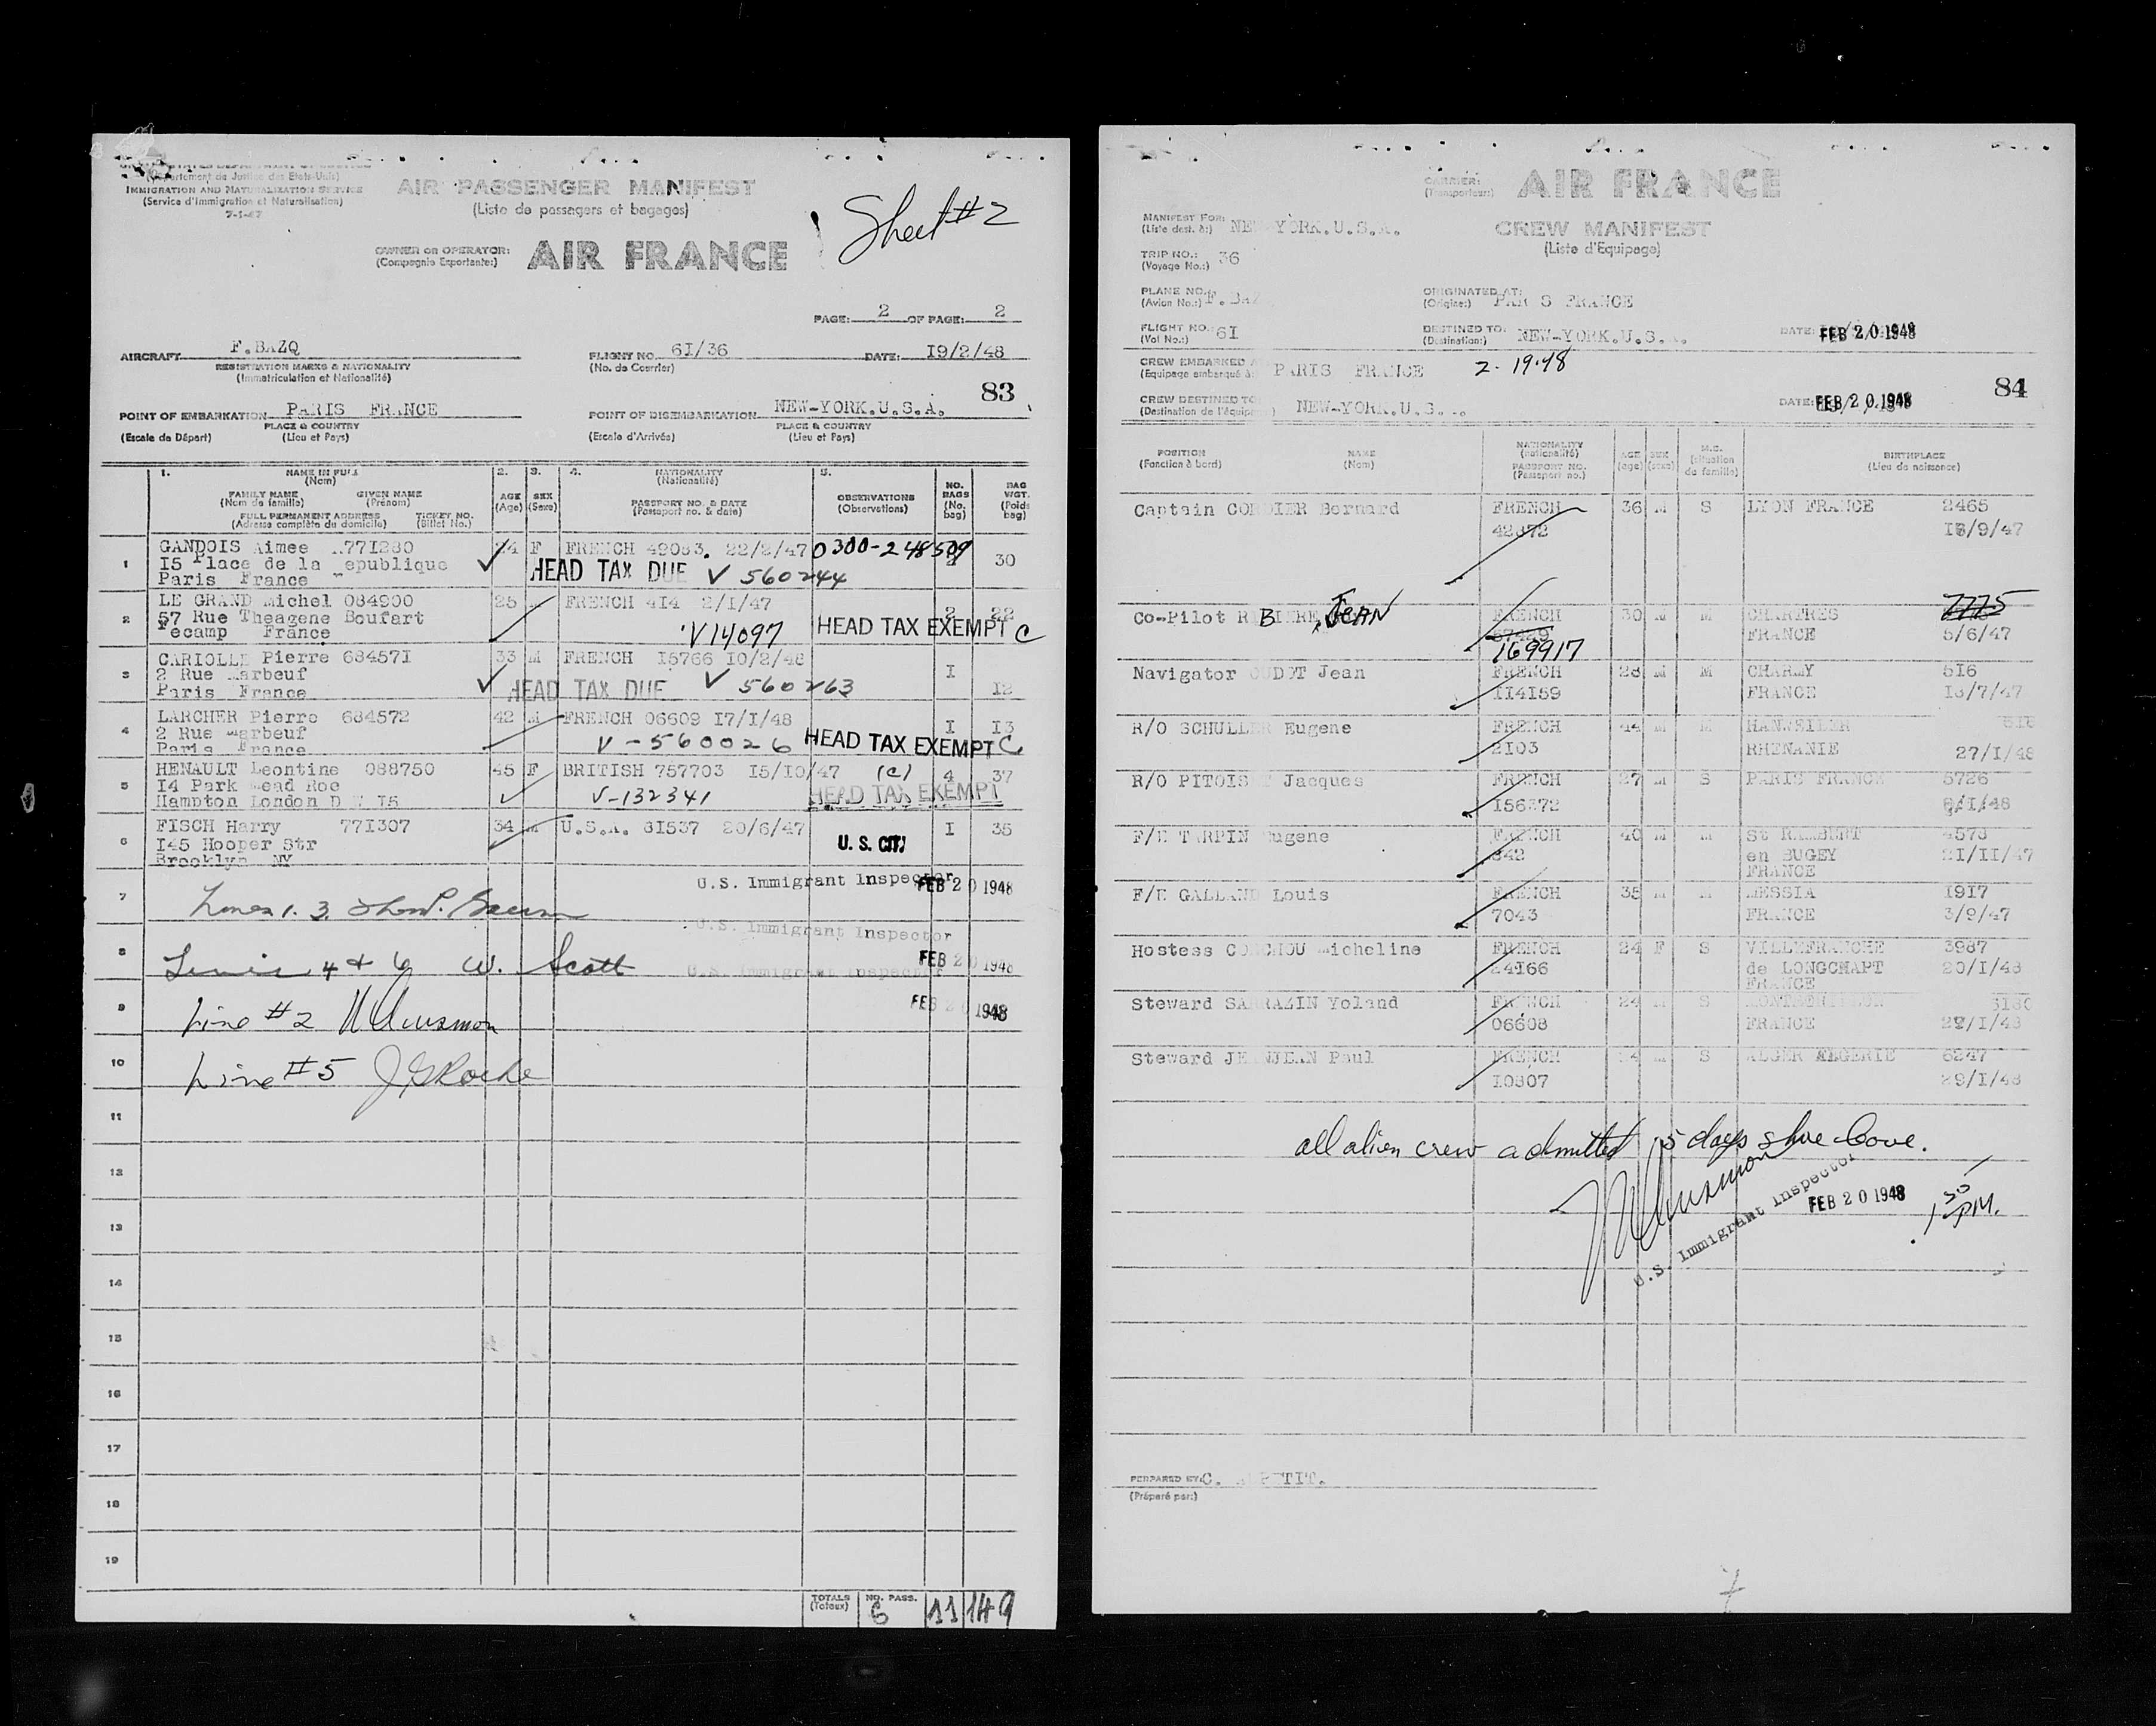 (Département de Justice des Etats-Unis)
IMMIGRATION AND NATURALIZATION SERVICE
(Service d'Immigration et Naturalisation)
7-1-47
AIR PASSENGER MANIFEST
(Liste de passagers et bagages)
Sheet #2
OWNER OR OPERATOR: AIR FRANCE
(Compagnie Exportante:)
PAGE: 2 OF PAGE: 2
AIRCRAFT F.BAZQ FLIGHT NO. 6I/36 DATE: I9/2/48
REGISTRATION MARKS & NATIONALITY (No. de Courrier)
(Immatriculation et Nationalité)
83
POINT OF EMBARKATION PARIS FRANCE POINT OF DISEMBARKATION NEW-YORK.U.S.A.
PLACE & COUNTRY PLACE & COUNTRY
(Escale de Départ) (Lieu et Pays) (Escale d'Arrivée) (Lieu et Pays)
1. NAME IN FULL 2. 3. 4. NATIONALITY 5.
(Nom) (Nationalité)
FAMILY NAME GIVEN NAME AGE SEX PASSPORT NO. & DATE OBSERVATIONS NO. BAGS BAG WGT.
(Nom de famille) (Prénom) (Age) (Sexe) (Passeport no. & date) (Observations) (No. bag) (Poids bag)
FULL PERMANENT ADDRESS TICKET NO.
(Adresse complète du domicile) (Billet No.)
1 GANDOIS Aimee 77I280 24 F FRENCH 49083. 22/2/47 0300-248509 30
I5 Place de la epublique HEAD TAX DUE V 560244
Paris France
2 LE GRAND Michel 084900 25 FRENCH 4I4 2/I/47 2 22
57 Rue Theagene Boufart V14097 HEAD TAX EXEMPT C
Fecamp France
3 CARIOLLE Pierre 68457I 33 M FRENCH I5766 I0/2/48 I
2 Rue Marbeuf HEAD TAX DUE V 560263
Paris France I2
4 LARCHER Pierre 684572 42 M FRENCH 06609 I7/I/48 I I3
2 Rue Marbeuf V-560026 HEAD TAX EXEMPT C
Paris France
5 HENAULT Leontine 088750 45 F BRITISH 757703 I5/I0/47 (C) 4 37
I4 Park mead Roe V-132341 HEAD TAX EXEMPT
Hampton London
6 FISCH Harry 77I307 34 M U.S.A. 8I537 20/6/47 I 35
I45 Hooper Str U.S. CIT.
Brooklyn NY
7 U.S. Immigrant Inspector FEB 20 1948
Lines 1. 3.
U.S. Immigrant Inspector
8 Lines 4 & 6 W. Scott U.S. Immigrant Inspector FEB 20 1948
9 Line #2 FEB 20 1948
10 Line #5 J G Roche
11
12
13
14
15
16
17
18
19
TOTALS NO. PASS. 6 11 149
(Totaux)
CARRIER: AIR FRANCE
(Transporteur:)
MANIFEST FOR: NEW YORK.U.S.A. CREW MANIFEST
(Liste dest. à:) (Liste d'Equipage)
TRIP NO.: 36
(Voyage No.:)
PLANE NO.: F.BAZ ORIGINATED AT: PARIS FRANCE
(Avion No.:) (Origine:)
FLIGHT NO.: 6I DESTINED TO: NEW-YORK.U.S. DATE: FEB 20 1948
(Vol No.:) (Destination:)
CREW EMBARKED A PARIS FRANCE 2-19-48
(Equipage embarqué à:
84
CREW DESTINED TO NEW-YORK.U.S. DATE: FEB 20 1948
(Destination de l'équipe
POSITION NAME NATIONALITY AGE SEX M.S. BIRTHPLACE
(Fonction à bord) (Nom) (nationalité) (age) (sexe) (situation de famille) (Lieu de naissance)
PASSPORT NO.
(Passeport no.)
Captain CORDIER Bernard FRENCH 36 M S LYON FRANCE 2465
42872 I8/9/47
Co-Pilot RIBIERE, JEAN FRENCH 30 M M CHARTRES 7775
169917 FRANCE 5/6/47
Navigator OUDOT Jean FRENCH 28 M M CHARMY 5I6
II4I59 FRANCE I8/7/47
R/O SCHULLER Eugene FRENCH 44 M M HANWEILER 5I8
2I03 RHENANIE 27/I/48
R/O PITOIS Jacques FRENCH 27 M S PARIS FRANCE 5726
I56372 /I/48
F/E TARPIN Eugene FRENCH 40 M M St RAMBERT 4573
842 en BUGEY 2I/II/47
FRANCE
F/E GALLAND Louis FRENCH 35 M M MESSIA I9I7
7043 FRANCE 3/9/47
Hostess CONCHOU Micheline FRENCH 24 F S VILLEFRANCHE 3987
24I66 de LONGCHAPT 20/I/48
FRANCE
Steward SARRAZIN Yoland FRENCH 24 M S
06608 FRANCE 2/I/48
Steward JEANJEAN Paul FRENCH 34 M S ALGER ALGERIE 6247
I0807 29/I/48
all alien crew admitted 15 days shore leave.
U.S. Immigrant Inspector
FEB 20 1948 1 30 PM.
PREPARED BY: C. PETIT.
(Préparé par:)